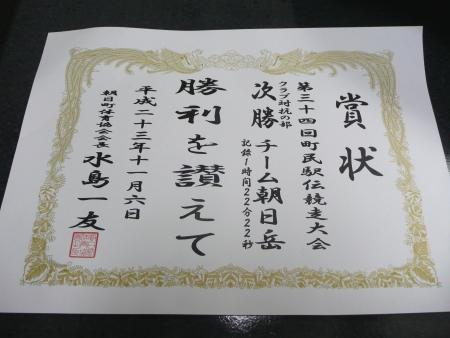 賞状
第三十四回町民駅伝競走大会
クラブ対抗の部
次勝 チーム朝日岳
記録1時間22分22秒
勝利を讃えて
平成二十三年十一月六日
朝日町体育協会会長 水島一友